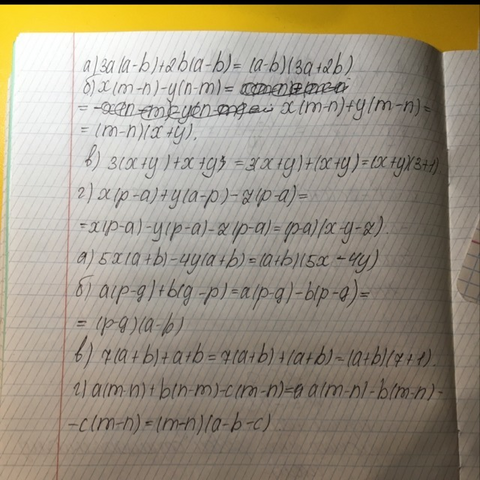 а) 3a(a-b)+2b(a-b)= (a-b)(3a+2b)
б) x(m-n)-y(n-m)=
= x(m-n)+y(m-n)=
= (m-n)(x+y).
в) 3(x+y)+x+y = 3(x+y)+(x+y)=(x+y)(3+1)
г) x(p-a)+y(a-p)-z(p-a)=
=x(p-a)-y(p-a)-z(p-a)=(p-a)(x-y-z)
а) 5x(a+b)-4y(a+b)=(a+b)(5x-4y)
б) a(p-g)+b(g-p)=a(p-g)-b(p-g)=
= (p-g)(a-b)
в) 7(a+b)+a+b=7(a+b)+(a+b)=(a+b)(7+1).
г) a(m-n)+b(n-m)-c(m-n)=a a(m-n)-b(m-n)-
-c(m-n)=(m-n)(a-b-c)